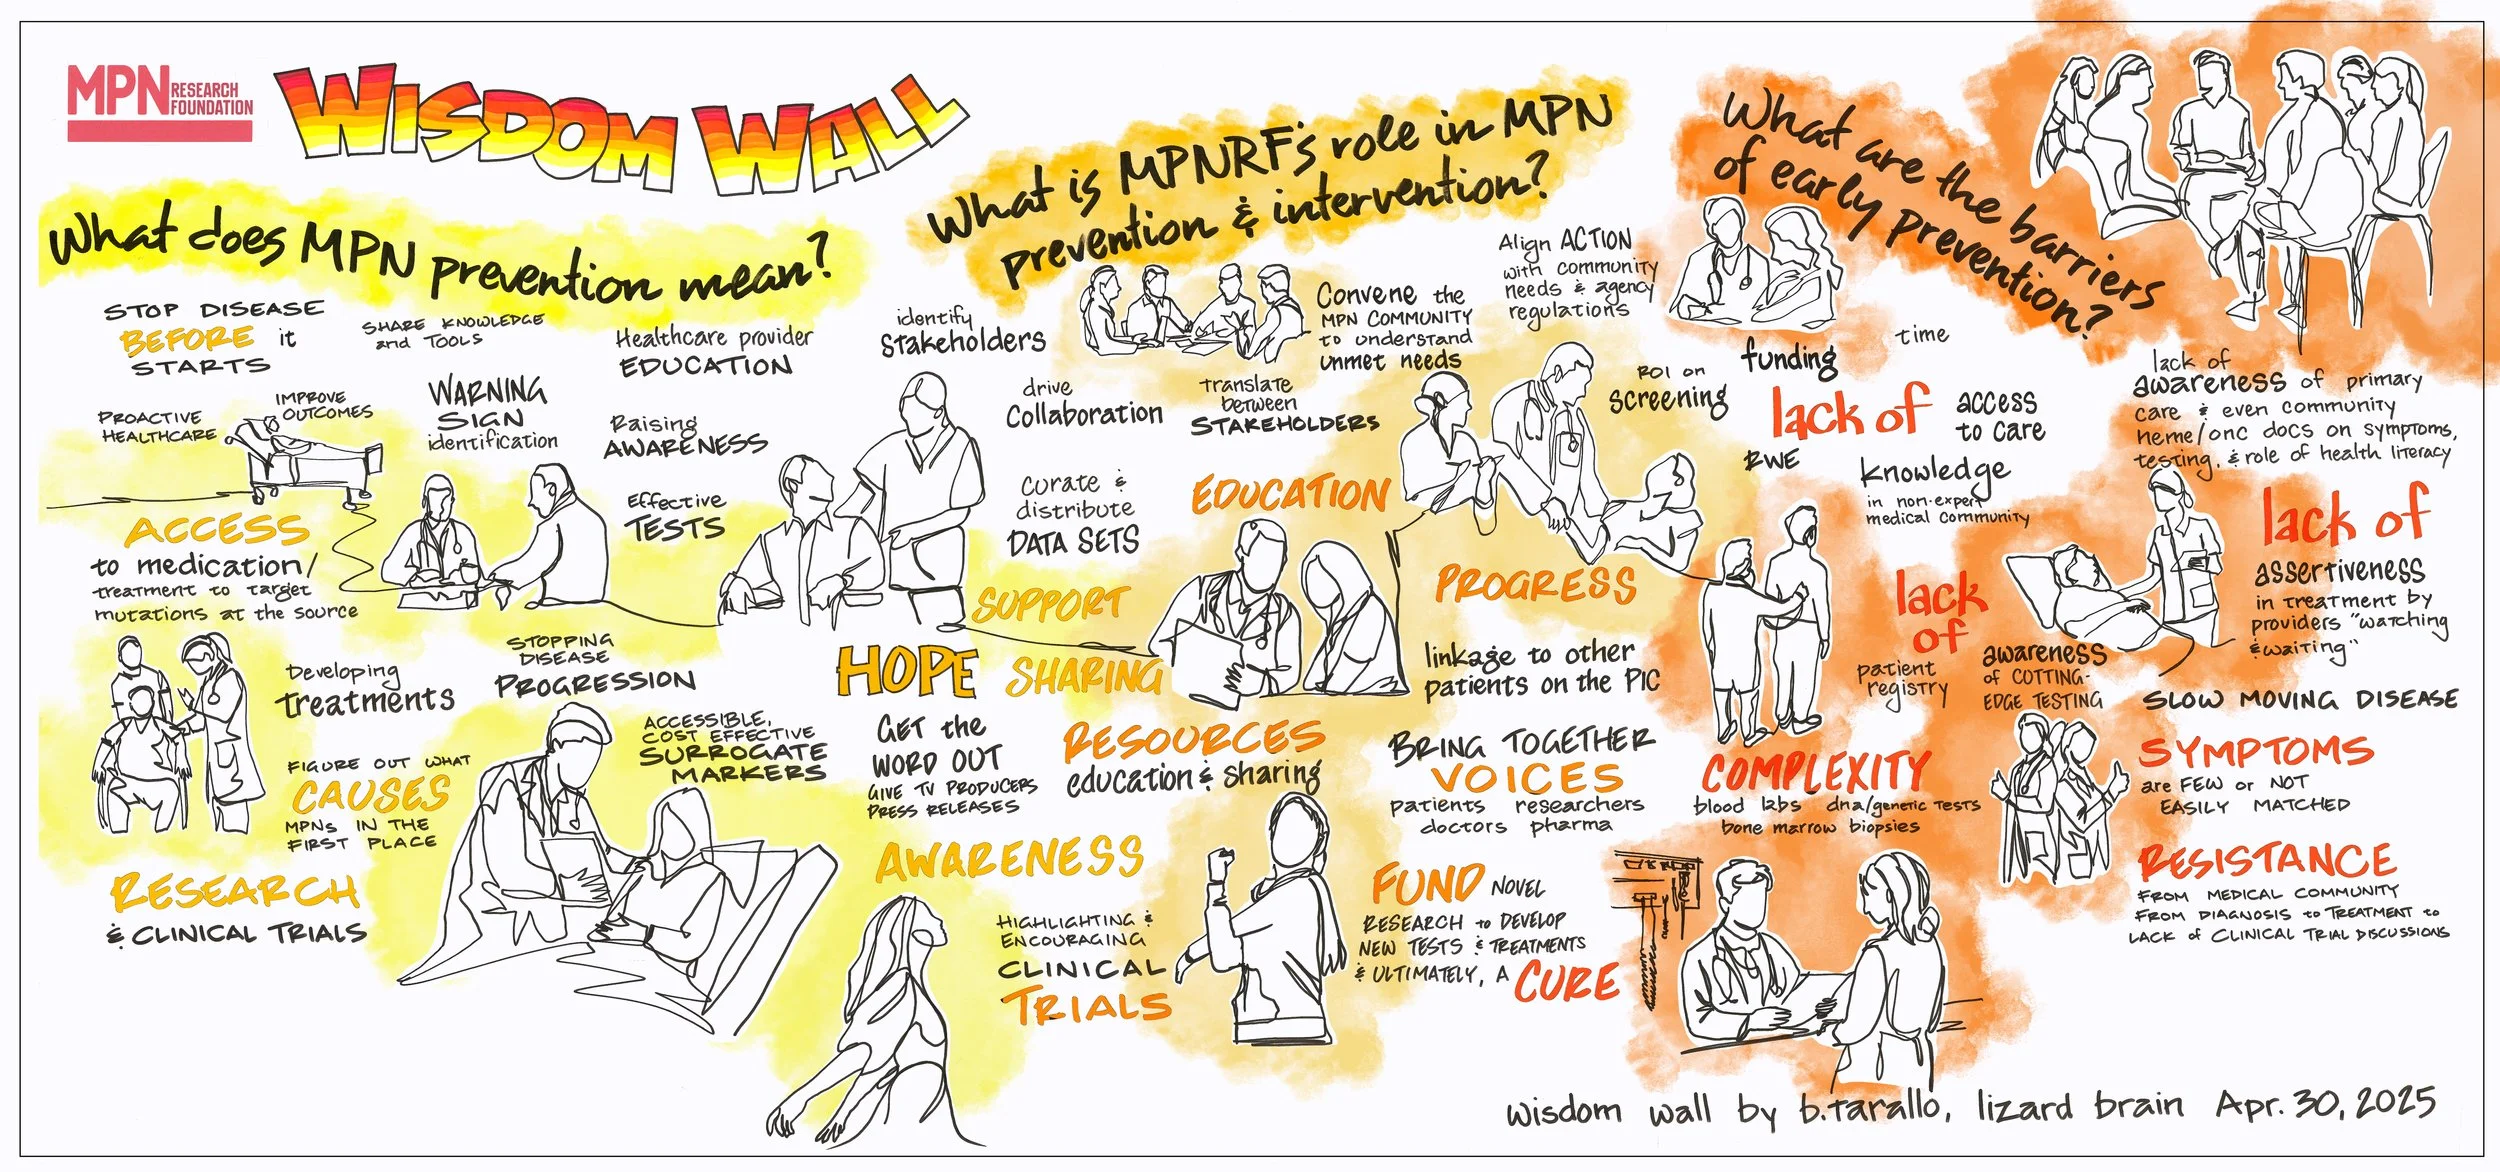 MPN RESEARCH
FOUNDATION
WISDOM WALL
What does MPN prevention mean?
STOP DISEASE
BEFORE it
STARTS
SHARE KNOWLEDGE
and TOOLS
Healthcare provider
EDUCATION
PROACTIVE
HEALTHCARE
IMPROVE
OUTCOMES
WARNING
SIGN
identification
Raising
AWARENESS
Effective
TESTS
ACCESS
to medication/
treatment to target
mutations at the source
Developing
treatments
STOPPING
DISEASE
PROGRESSION
FIGURE OUT WHAT
CAUSES
MPNs IN THE
FIRST PLACE
ACCESSIBLE,
COST EFFECTIVE
SURROGATE
MARKERS
RESEARCH
& CLINICAL TRIALS
HOPE
GET the
WORD OUT
GIVE TV PRODUCERS
PRESS RELEASES
AWARENESS
What is MPNRF's role in MPN
prevention & intervention?
identify
stakeholders
Convene the
MPN COMMUNITY
to understand
unmet needs
Align ACTION
with community
needs & agency
regulations
drive
Collaboration
translate
between
STAKEHOLDERS
curate &
distribute
DATA SETS
EDUCATION
SUPPORT
SHARING
PROGRESS
RESOURCES
education & sharing
linkage to other
patients on the PIC
BRING TOGETHER
VOICES
patients researchers
doctors pharma
HIGHLIGHTING &
ENCOURAGING
CLINICAL
TRIALS
FUND NOVEL
RESEARCH to DEVELOP
NEW TESTS & TREATMENTS
& ULTIMATELY, A
CURE
What are the barriers
of early prevention?
ROI on
screening
funding
time
lack of
access
to care
RWE
knowledge
in non-expert
medical community
lack of
awareness of primary
care & even community
heme/onc docs on symptoms,
testing, & role of health literacy
lack of
assertiveness
in treatment by
providers "watching
& waiting"
lack
of
patient
registry
awareness
of CUTTING-
EDGE TESTING
SLOW MOVING DISEASE
COMPLEXITY
blood labs dna/genetic TESTS
bone marrow biopsies
SYMPTOMS
are FEW or NOT
EASILY MATCHED
RESISTANCE
FROM MEDICAL COMMUNITY
FROM DIAGNOSIS to TREATMENT to
LACK of CLINICAL TRIAL DISCUSSIONS
wisdom wall by b.tarallo, lizard brain Apr. 30, 2025